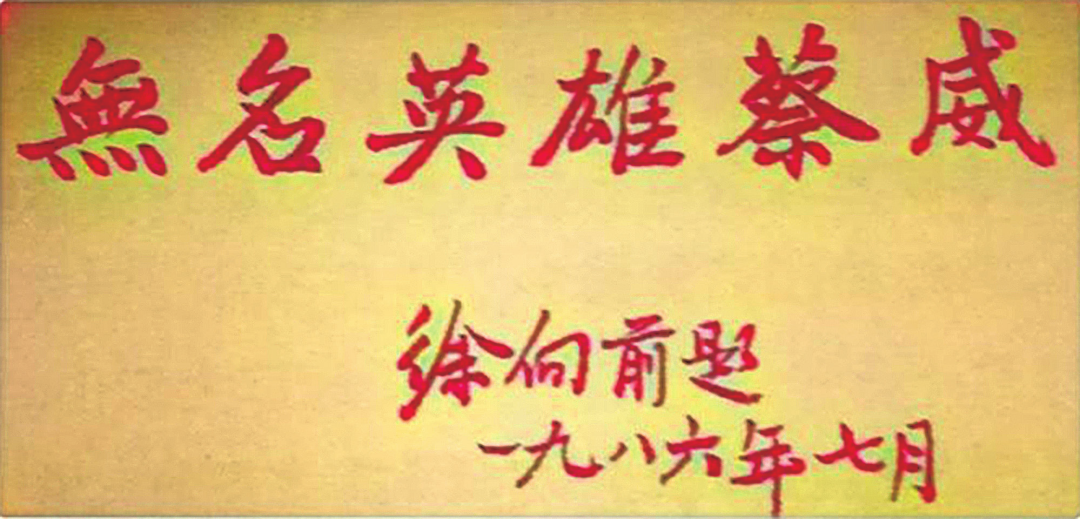 無名英雄蔡威
徐向前题
一九八六年七月